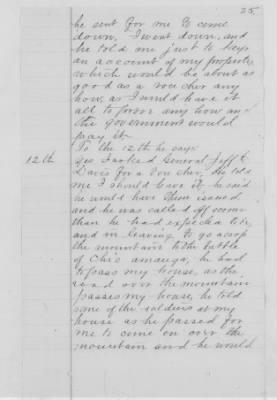 25.
he sent for me to come
down, I went down, and
he told me just to keep
an account of my property
which would be about as
good as a voucher any
how, as I would have it
all to prove any how and
the government would
pay it.
To the 12th he says:
12th
yes I asked General Jeff C.
Davis for a voucher, he told
me I should have it, he said
he would have them issued,
and he was called off sooner
than he had expected to be,
and in leaving to go across
the mountain to the battle
of Chicamauga, he had
to pass my house, as the
road over the mountain
passes my house, he told
some of the soldiers at my
house as he passed for
me to come on over the
mountain and he would